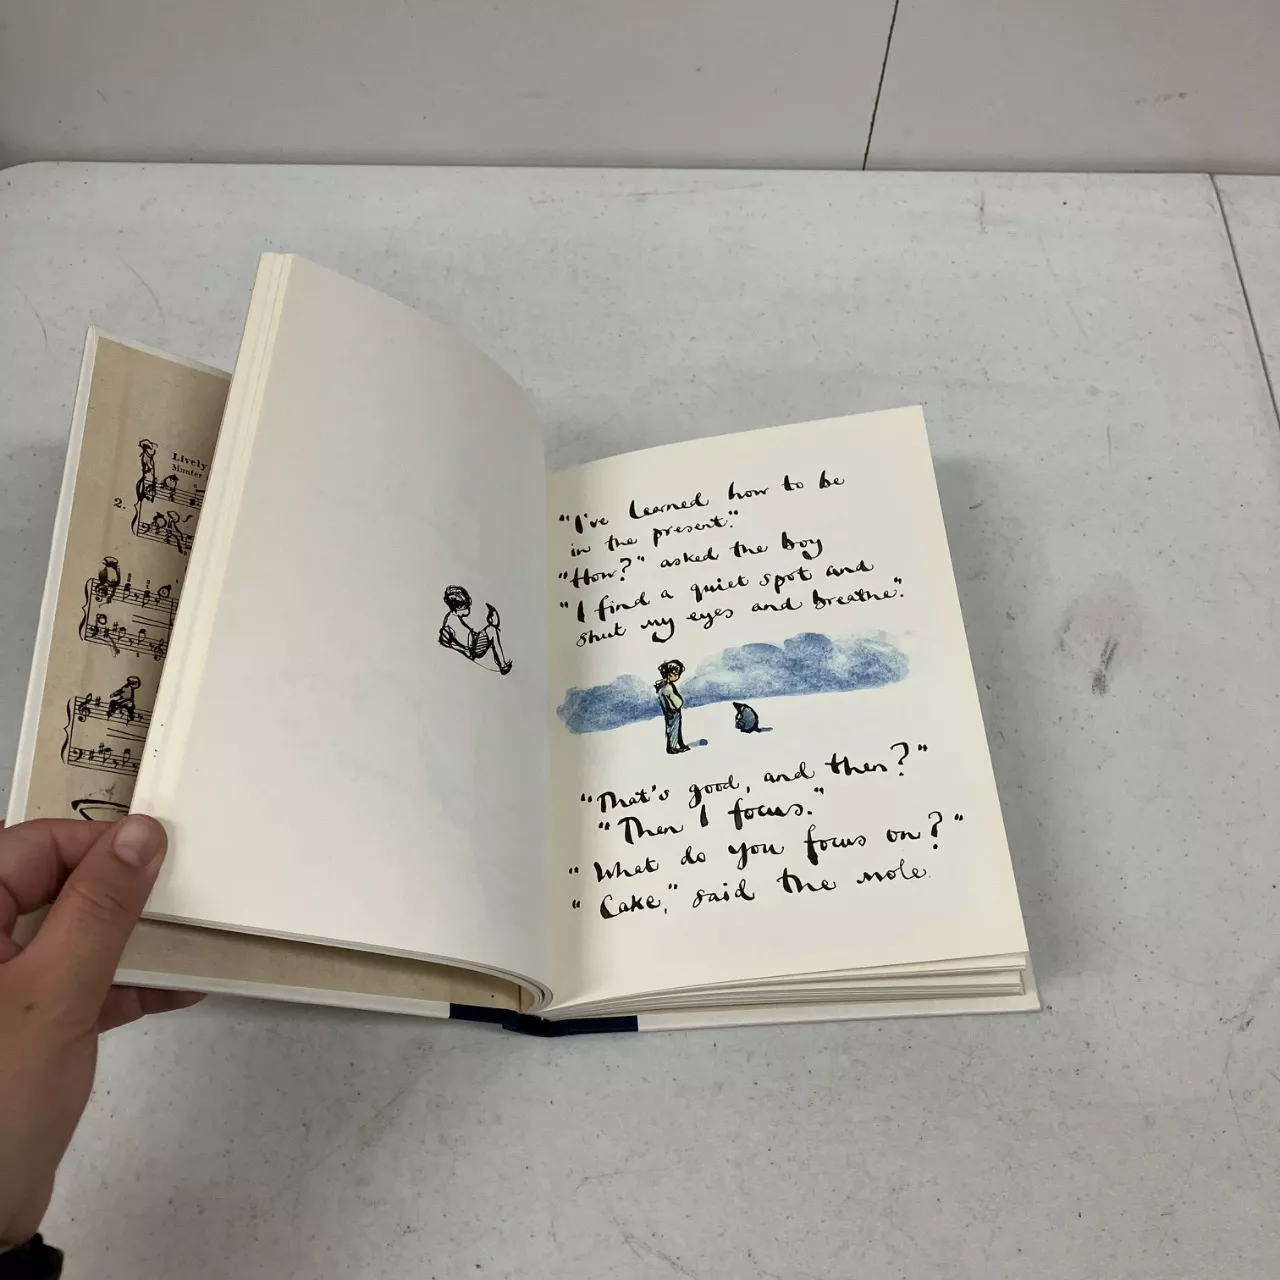 Lively
Munter
2.
"I've learned how to be
in the present."
"How?" asked the boy
"I find a quiet spot and
shut my eyes and breathe."
"That's good, and then?"
"Then I focus."
"What do you focus on?"
"Cake," said the mole.